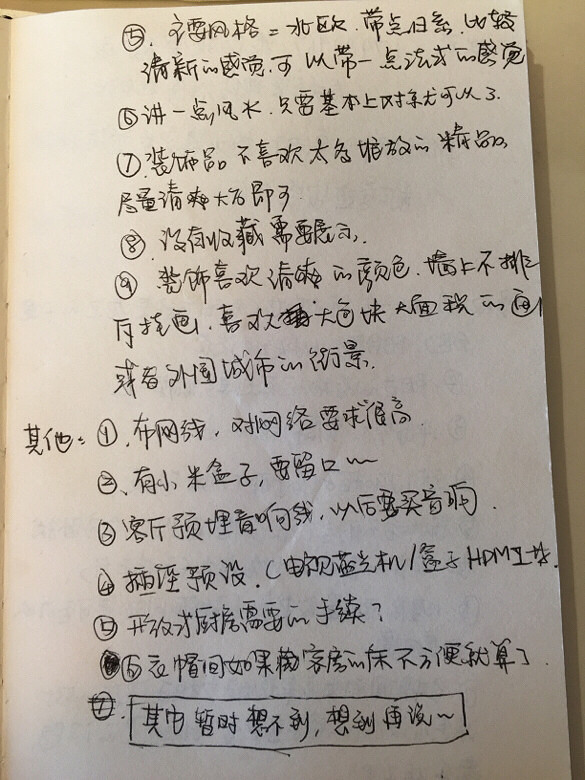 ⑤. 主要风格=北欧. 带点日系. 比较
清新的感觉. 可以带一点法式的感觉
⑥讲一点风水. 只要基本上对称就可以了.
⑦装饰品 不喜欢太多堆放的精品.
尽量清爽大方即可
⑧. 没有收藏需要展示.
⑨ 装饰喜欢清爽的颜色. 墙上不排
斥挂画. 喜欢大色块大面积的画
或者外国城市的街景.
其他: ①. 布网线, 对网络要求很高
②、有小米盒子, 要留口~
③ 客厅预埋音响线, 以后要买音响.
④ 插座预设. (电视蓝光机/盒子HDMI
⑤ 开放式厨房需要的手续?
⑥衣帽间如果 客房的床不方便就算了.
⑦. 其它暂时想不到, 想到再说~